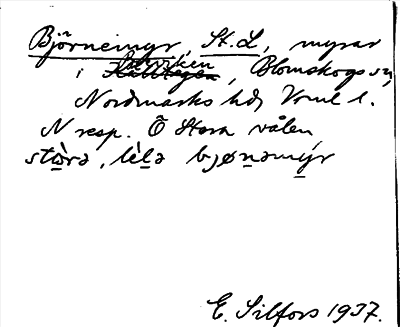 Björnemyr, St. L, myrar
i Larviken, Blomskogs sn,
Nordmarks hd, Vrml l.
N resp. Ö Stora vålen
stọ̀rə, lèlə bjønəmýr
E. Silfors 1937.